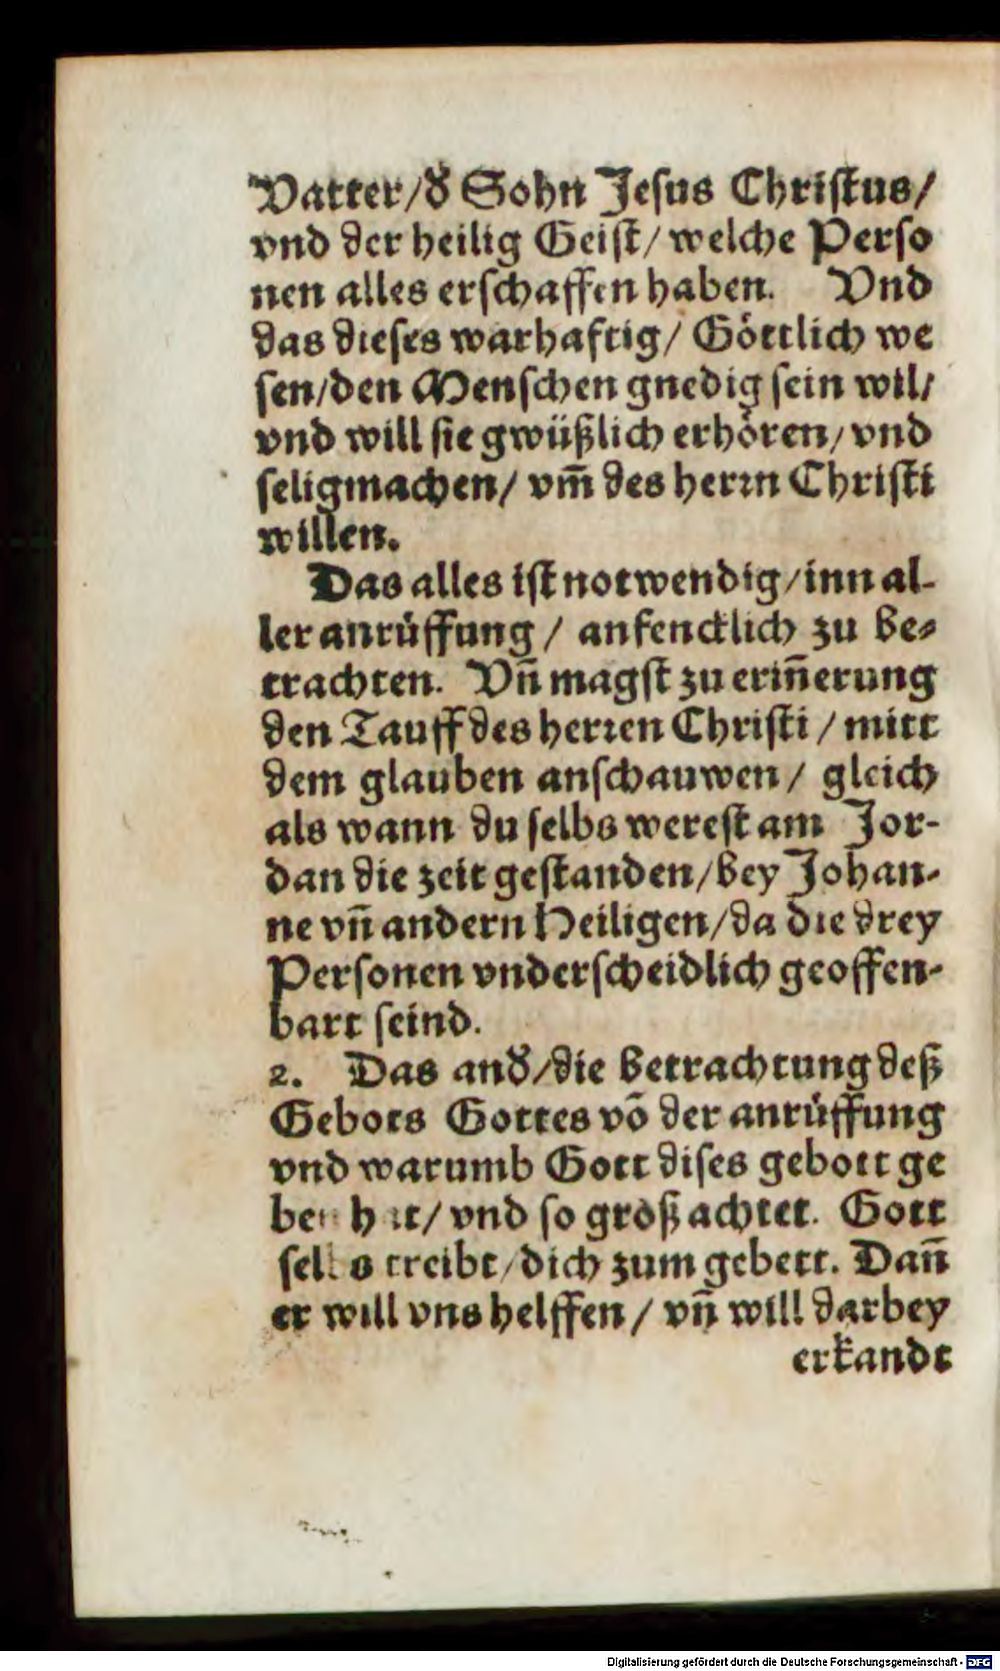 Vatter/d' Sohn Jesus Christus/
vnd der heilig Geist/ welche Perso
nen alles erschaffen haben. Vnd
das dieses warhaftig/ Göttlich we
sen/den Menschen gnedig sein wil/
vnd will sie gwüßlich erhören/ vnd
seligmachen/ vm̃ des herrn Christi
willen.
Das alles ist notwendig/inn al-
ler anrüffung / anfencklich zu be-
trachten. Vñ magst zu erin̄erung
den Tauff des herren Christi / mitt
dem glauben anschauwen / gleich
als wann du selbs werest am Jor-
dan die zeit gestanden/bey Johan-
ne vñ andern Heiligen/da die drey
Personen vnderscheidlich geoffen-
bart seind.
2. Das and'/die betrachtung deß
Gebots Gottes vō der anrüffung
vnd warumb Gott dises gebott ge
ben hat/ vnd so groß achtet. Gott
selbs treibt/dich zum gebett. Dan̄
er will vns helffen / vñ will darbey
erkandt
Digitalisierung gefördert durch die Deutsche Forschungsgemeinschaft - DFG